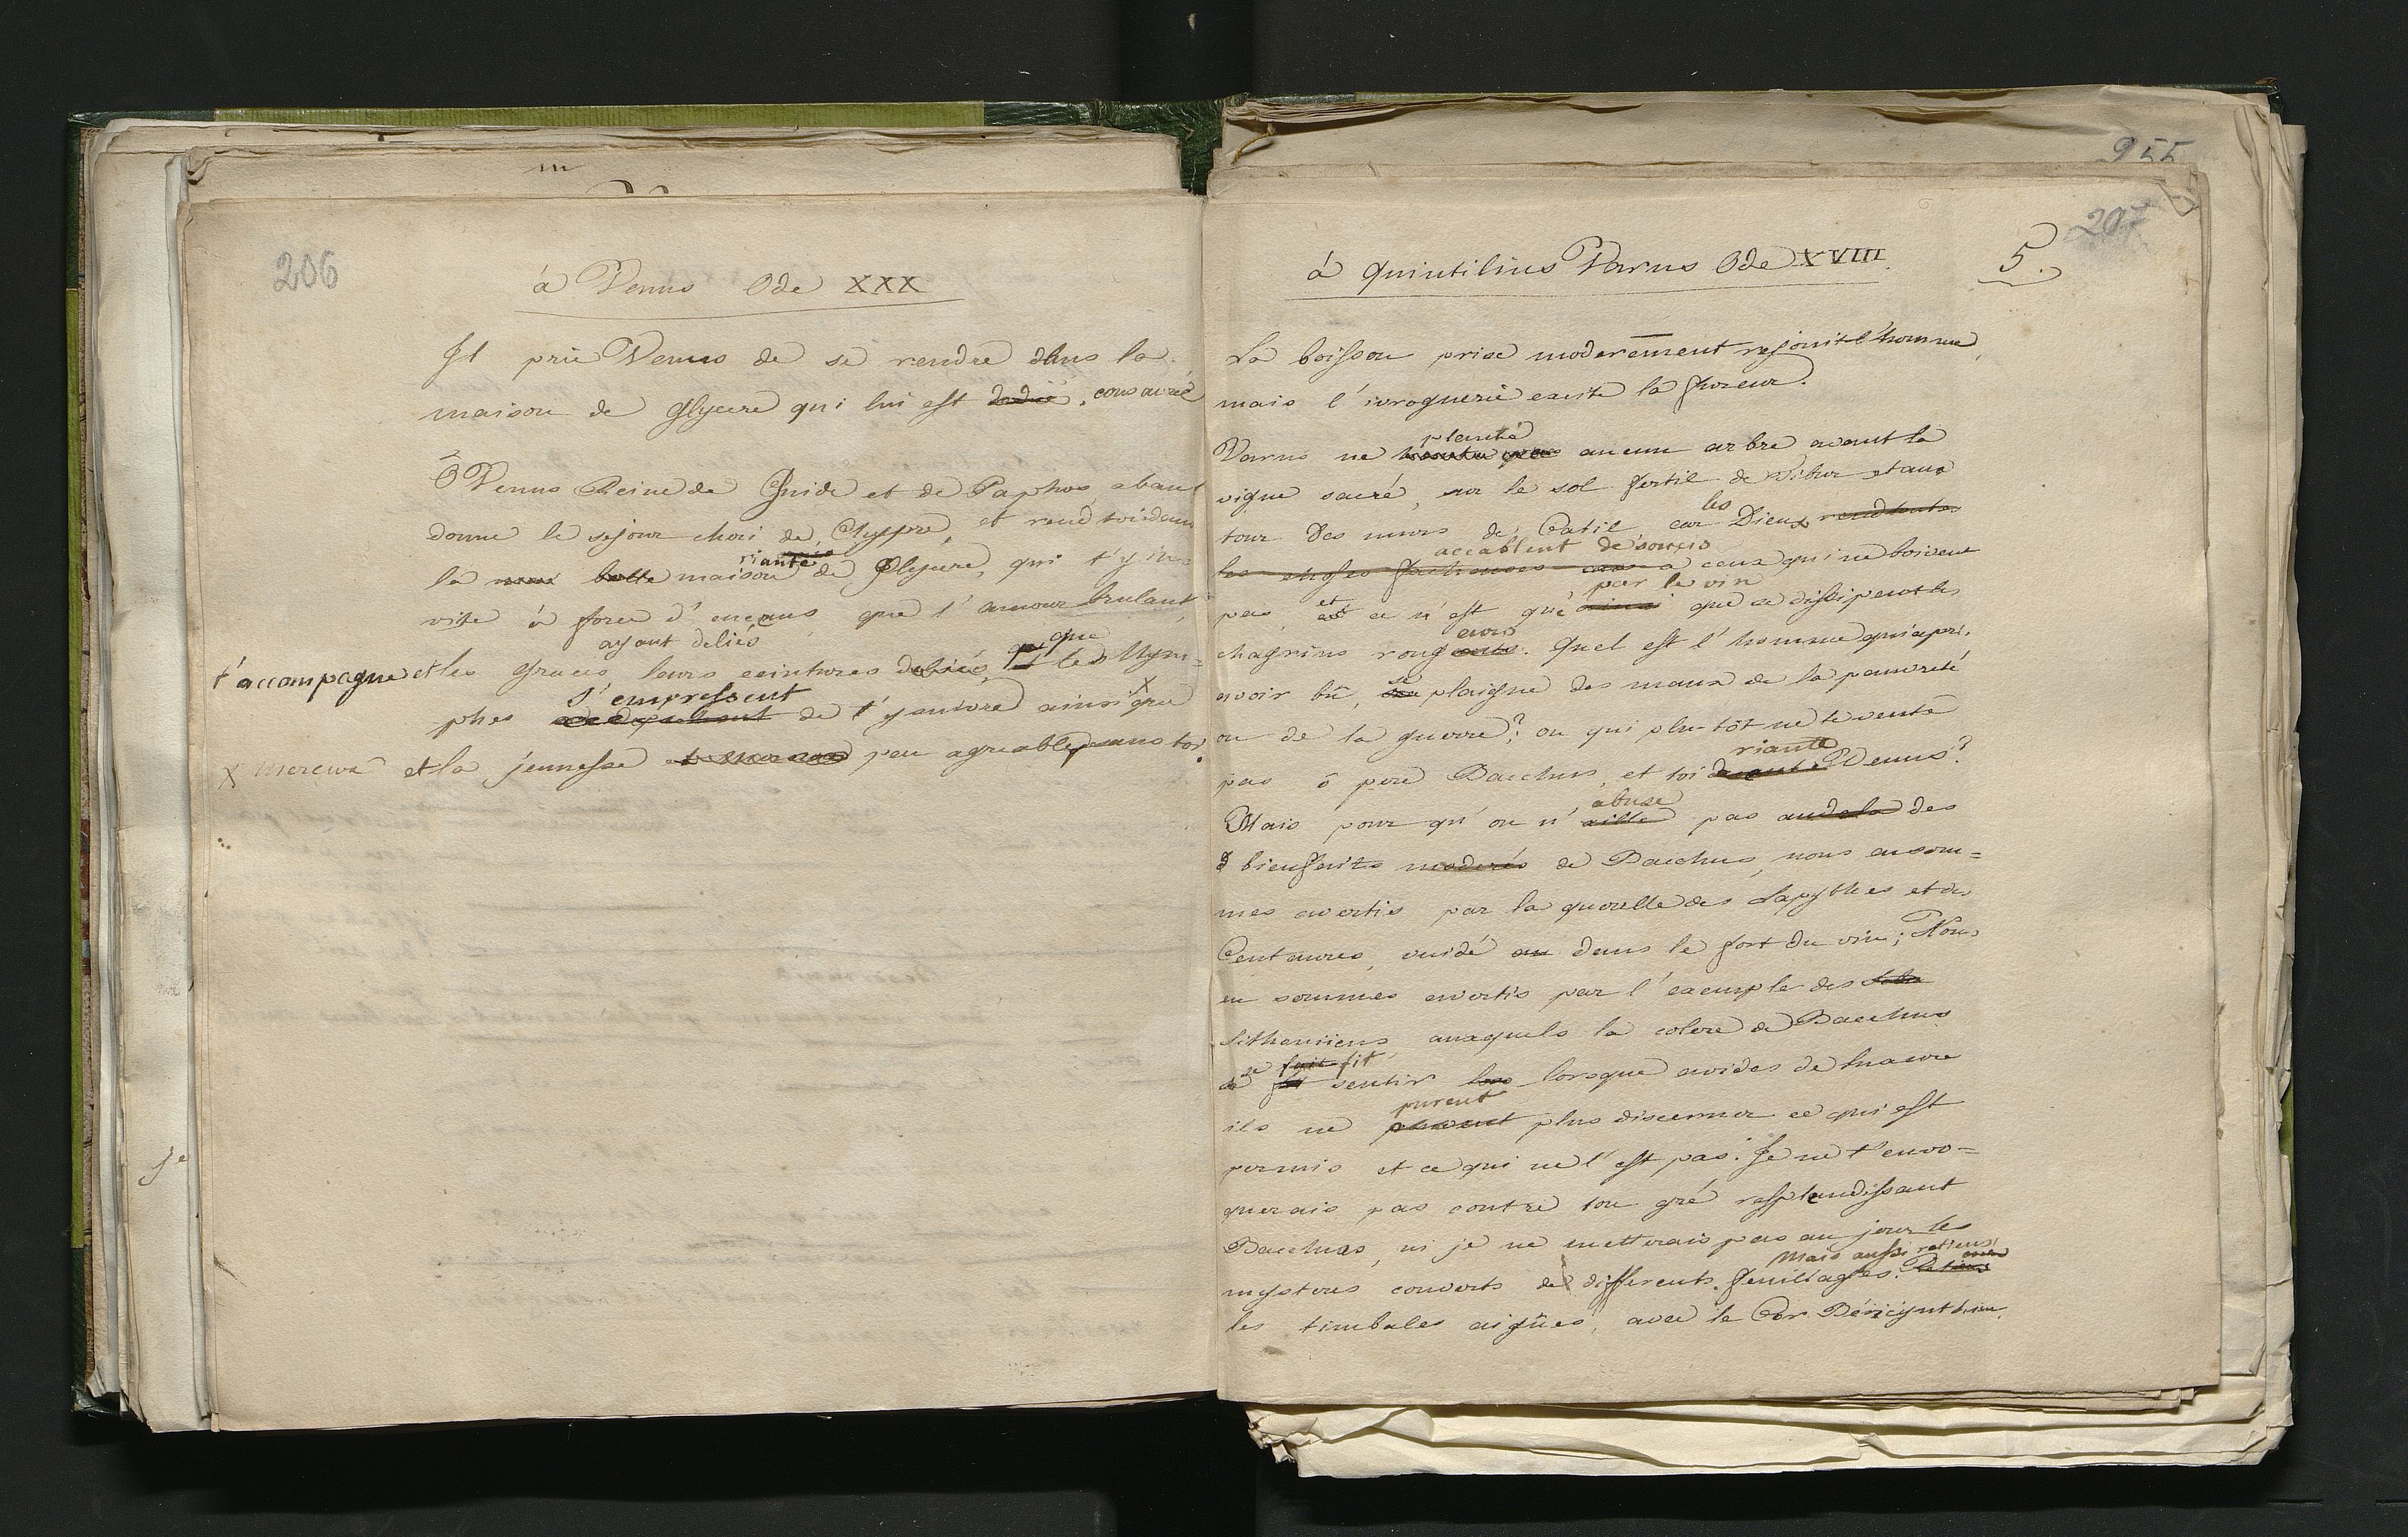 206
à Venus Ode XXX
Il prie Venus de se rendre dans la
maison de Glycere qui lui est dedié. consacrée
Ô Venus Reine de Gnide et de Paphos, aban
donne le sejour chori de Chypre, et rend toi dans
riante
la belle maison de Glycere, qui t'y in=
vite à force d'encens, que l'amour brulant
ayant deliés que
t'accompagne et les Graces leurs ceintures deliés, les Nym=
s'empressent X
phes de t'y suivre ainsi que
X Mercure et la jeunesse peu agreable sans toi.
955
207
5.
à Quintilius Varus Ode XVIII.
La boisson prise moderement rejouit l'homme,
mais l'ivrognerie excite la fureur.
planté
Varus ne aucun arbre avant la
vigne sacré, sur le sol fertil de Tibur et aux
les
tour des murs de Catil, car Dieux rend toutes
accablent de soucis
les choses facheuses a ceux qui ne boivent
et par le vin
pas, ce n'est qu'ainsi que se dissipent les
eurs
chagrins rongeants. Quel est l'homme qui apri,
se
avoir bû, plaigne des maux de la pauvreté
ou de la guerre? ou qui plu-tôt ne te vente
riante
pas ô pere Bacchus, et toi Venus?
abuse
Mais pour qu'on n'aille pas au dela des
bienfaits moderés de Bacchus, nous en som=
mes avertis par la querelle des Lapythes et des
Centaures, vuidé au dans le fort du vin; Nous
en sommes avertis par l'exemple des
Sithoniens, auxquels la colere de Bacchus
se fait fit
de sentir lorsque avides de luxure
purent
ils ne peuvent plus discerner ce qui est
permis et ce qui ne l'est pas. Je ne t'envo=
querais pas contre ton gré resplendissant
Bacchus, ni je ne metterais pas au jour les
Mais aussi retiens
mysteres couverts de differents feuillages. Retiens
les timbales aigûes, avec le Cor Bérécynthien.